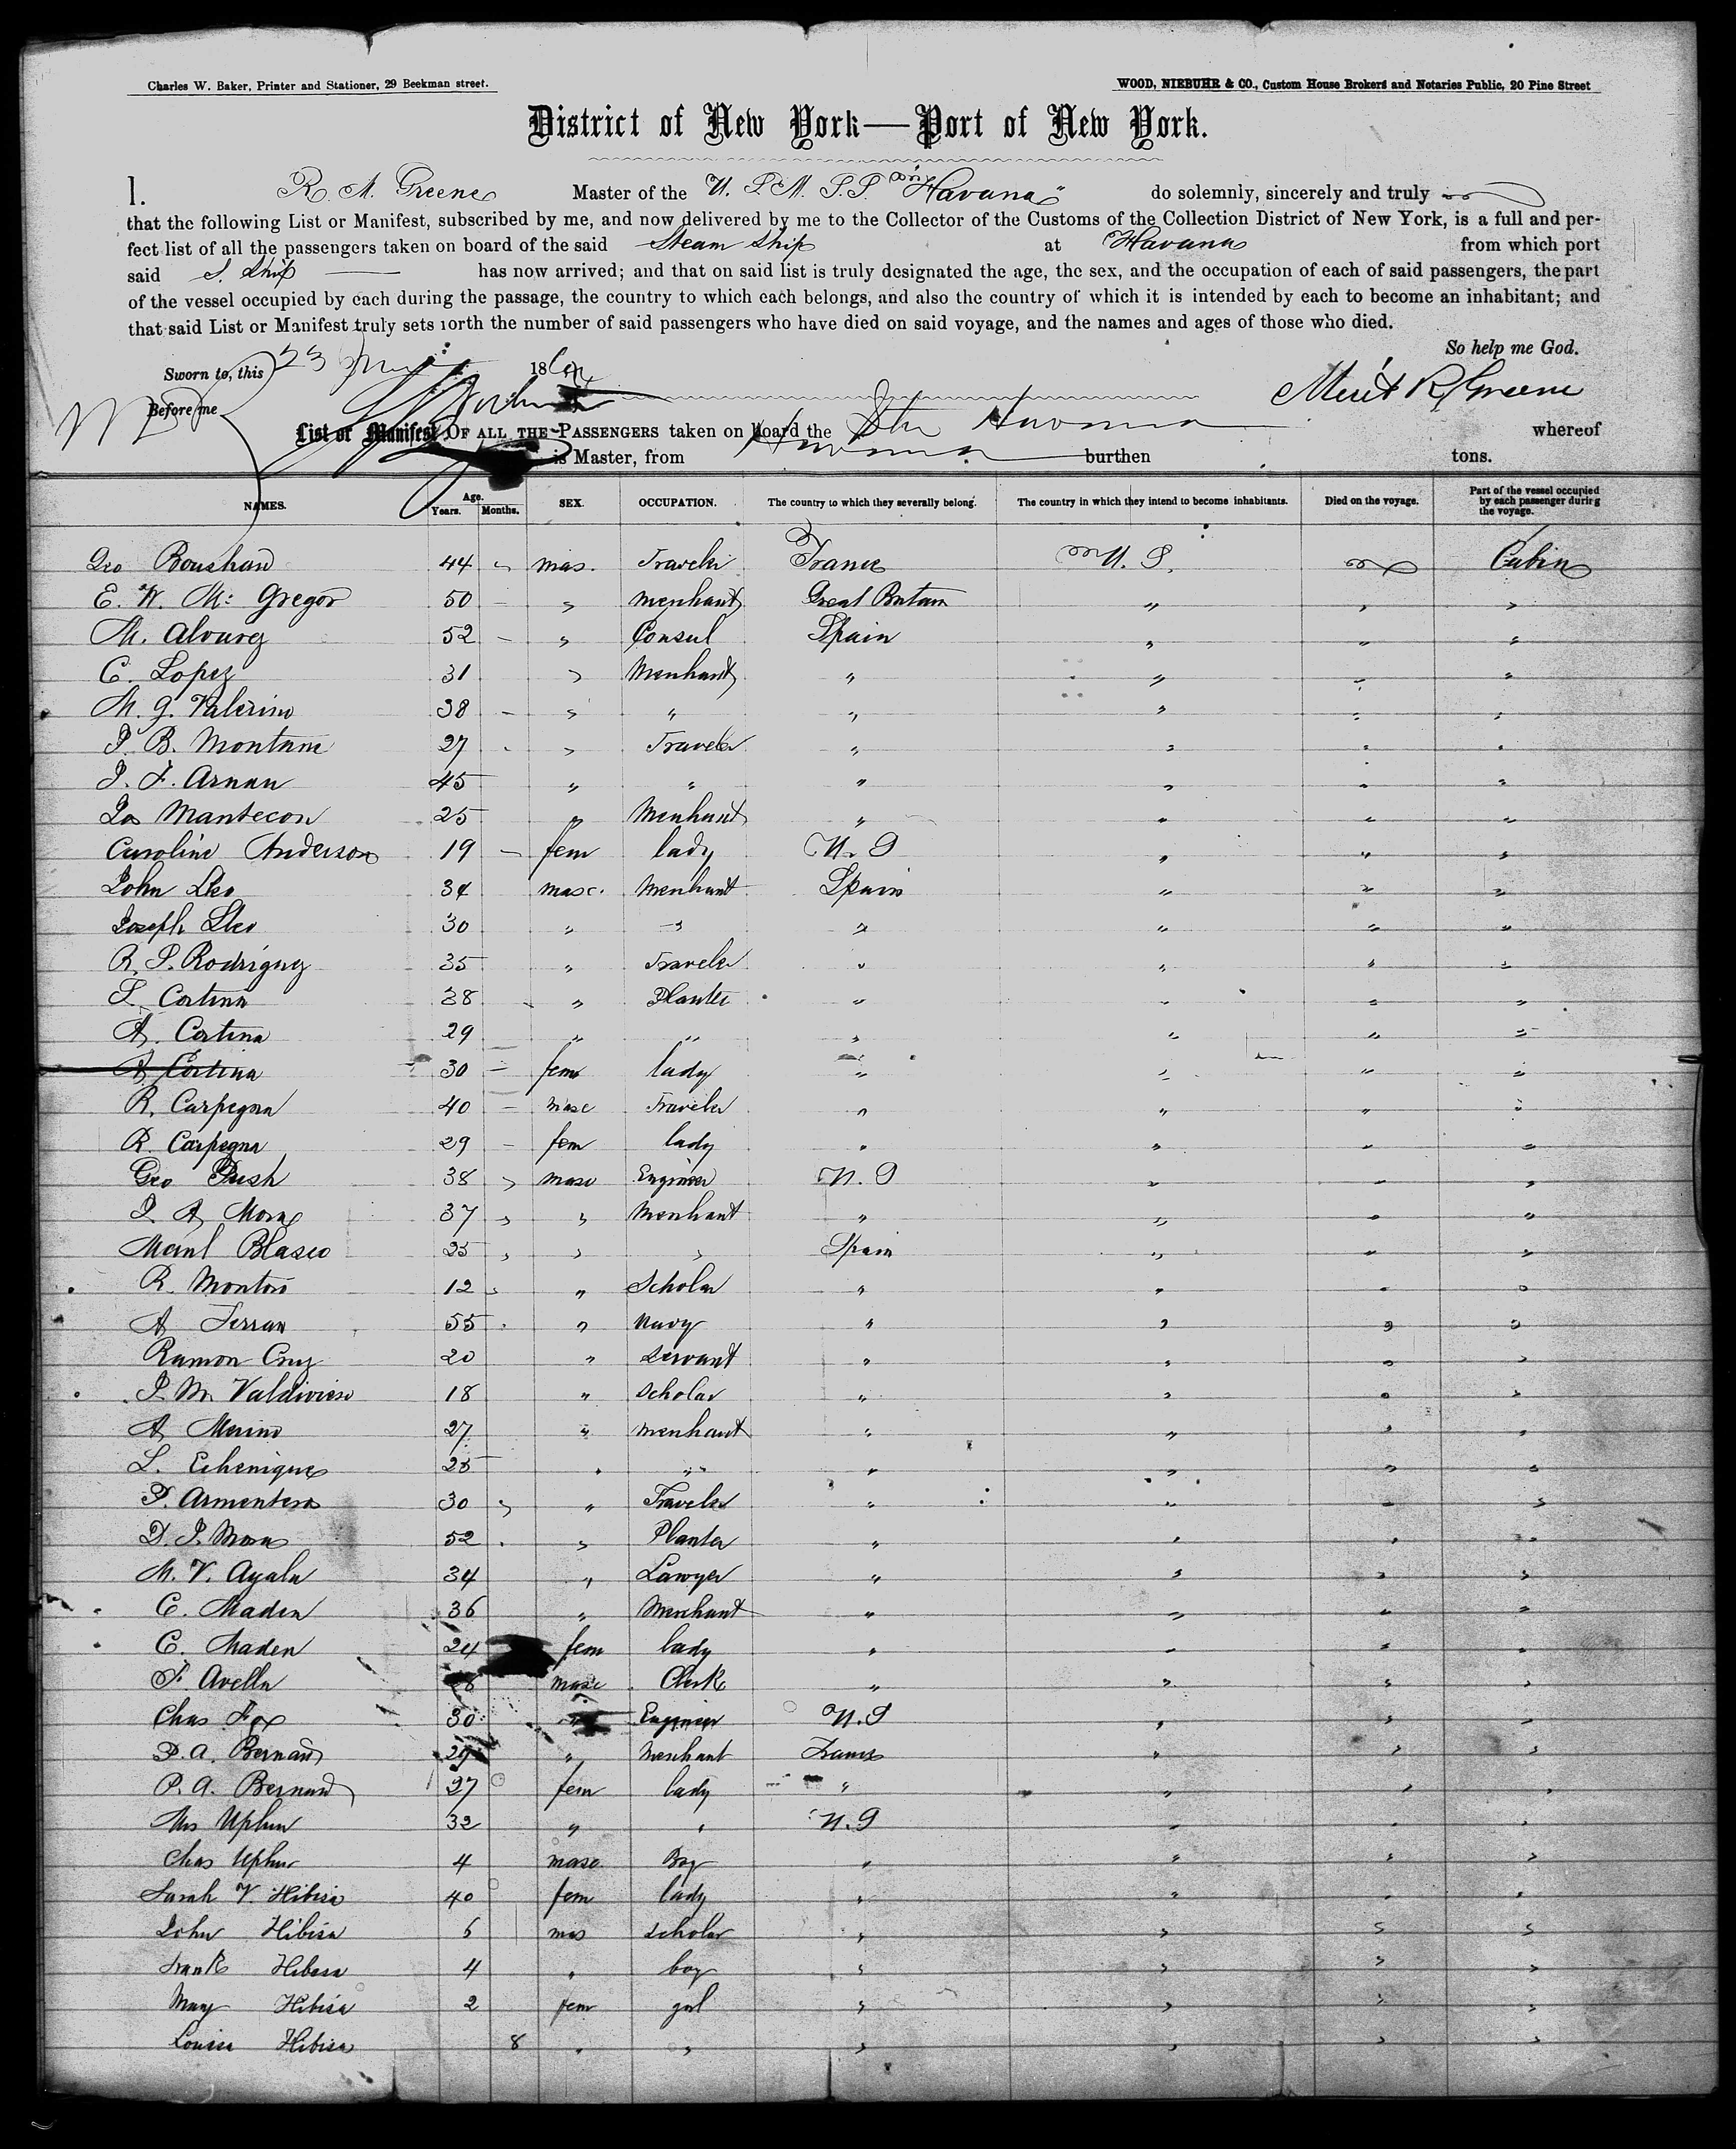 Charles W. Baker, Printer and Stationer, 29 Beekman street.
WOOD, NIEBUHR & CO., Custom House Brokers and Notaries Public, 20 Pine Street
District of New York—Port of New York.
I. Greene Master of the U. S. M. S.S. "Havana" do solemnly, sincerely and truly
that the following List or Manifest, subscribed by me, and now delivered by me to the Collector of the Customs of the Collection District of New York, is a full and per-
fect list of all the passengers taken on board of the said Steam Ship at Havana from which port
said S. Ship has now arrived; and that on said list is truly designated the age, the sex, and the occupation of each of said passengers, the part
of the vessel occupied by each during the passage, the country to which each belongs, and also the country of which it is intended by each to become an inhabitant; and
that said List or Manifest truly sets forth the number of said passengers who have died on said voyage, and the names and ages of those who died.
So help me God.
Sworn to, this 23 186
Before me
Greene
List or Manifest OF ALL THE PASSENGERS taken on board the Str Havana whereof
is Master, from Havana burthen tons.
NAMES. Age. Years. Months. SEX. OCCUPATION. The country to which they severally belong. The country in which they intend to become inhabitants. Died on the voyage. Part of the vessel occupied by each passenger during the voyage.
Geo 44 mas. Traveler France U. S. Cabin
E. W. Mc Gregor 50 " Merchant Great Britain " " "
M. 52 " Consul Spain " " "
C. Lopez 31 " Merchant " " " "
M. G. Valerino 38 " " " " " "
27 " Traveler " " " "
45 " " " " " "
Mantecon 25 " Merchant " " " "
Caroline Anderson 19 fem lady U. S " " "
John 34 masc. Merchant Spain " " "
Joseph 30 " " " " " "
R. S. Rodriguez 35 " Traveler " " " "
S. Cortina 38 " Planter " " " "
A. Cortina 29 " " " " " "
A Cortina 30 fem lady " " " "
R. Carpegna 40 masc Traveler " " " "
R. Carpegna 29 fem lady " " " "
Geo 38 masc Engineer U. S " " "
J. A. Mora 37 " Merchant " " " "
Manl Blasco 25 " " Spain " " "
R. Montoro 12 " Scholar " " " "
A Ferran 55 " Navy " " " "
Ramon Cruz 20 " Servant " " " "
J. M. Valdivieso 18 " Scholar " " " "
A Merino 27 " Merchant " " " "
L. Echenique 25 " " " " " "
P. Armenteros 30 " Traveler " " " "
D. J. Mora 52 " Planter " " " "
M. V. Ayala 34 " Lawyer " " " "
C. Maden 36 " Merchant " " " "
C. Maden 24 fem lady " " " "
F. Avella masc Clerk " " " "
Chas Fox 30 " Engineer U. S " " "
P. A. Bernard 29 " Merchant France " " "
P. A. Bernard 27 fem lady " " " "
Mrs 32 " " U. S " " "
Chas 4 masc Boy " " " "
Sarah V. Hibisa 40 fem lady " " " "
John Hibisa mas scholar " " " "
Frank Hibisa 4 " boy " " " "
Mary Hibisa 2 fem girl " " " "
Louisa Hibisa 8 " " " " " "